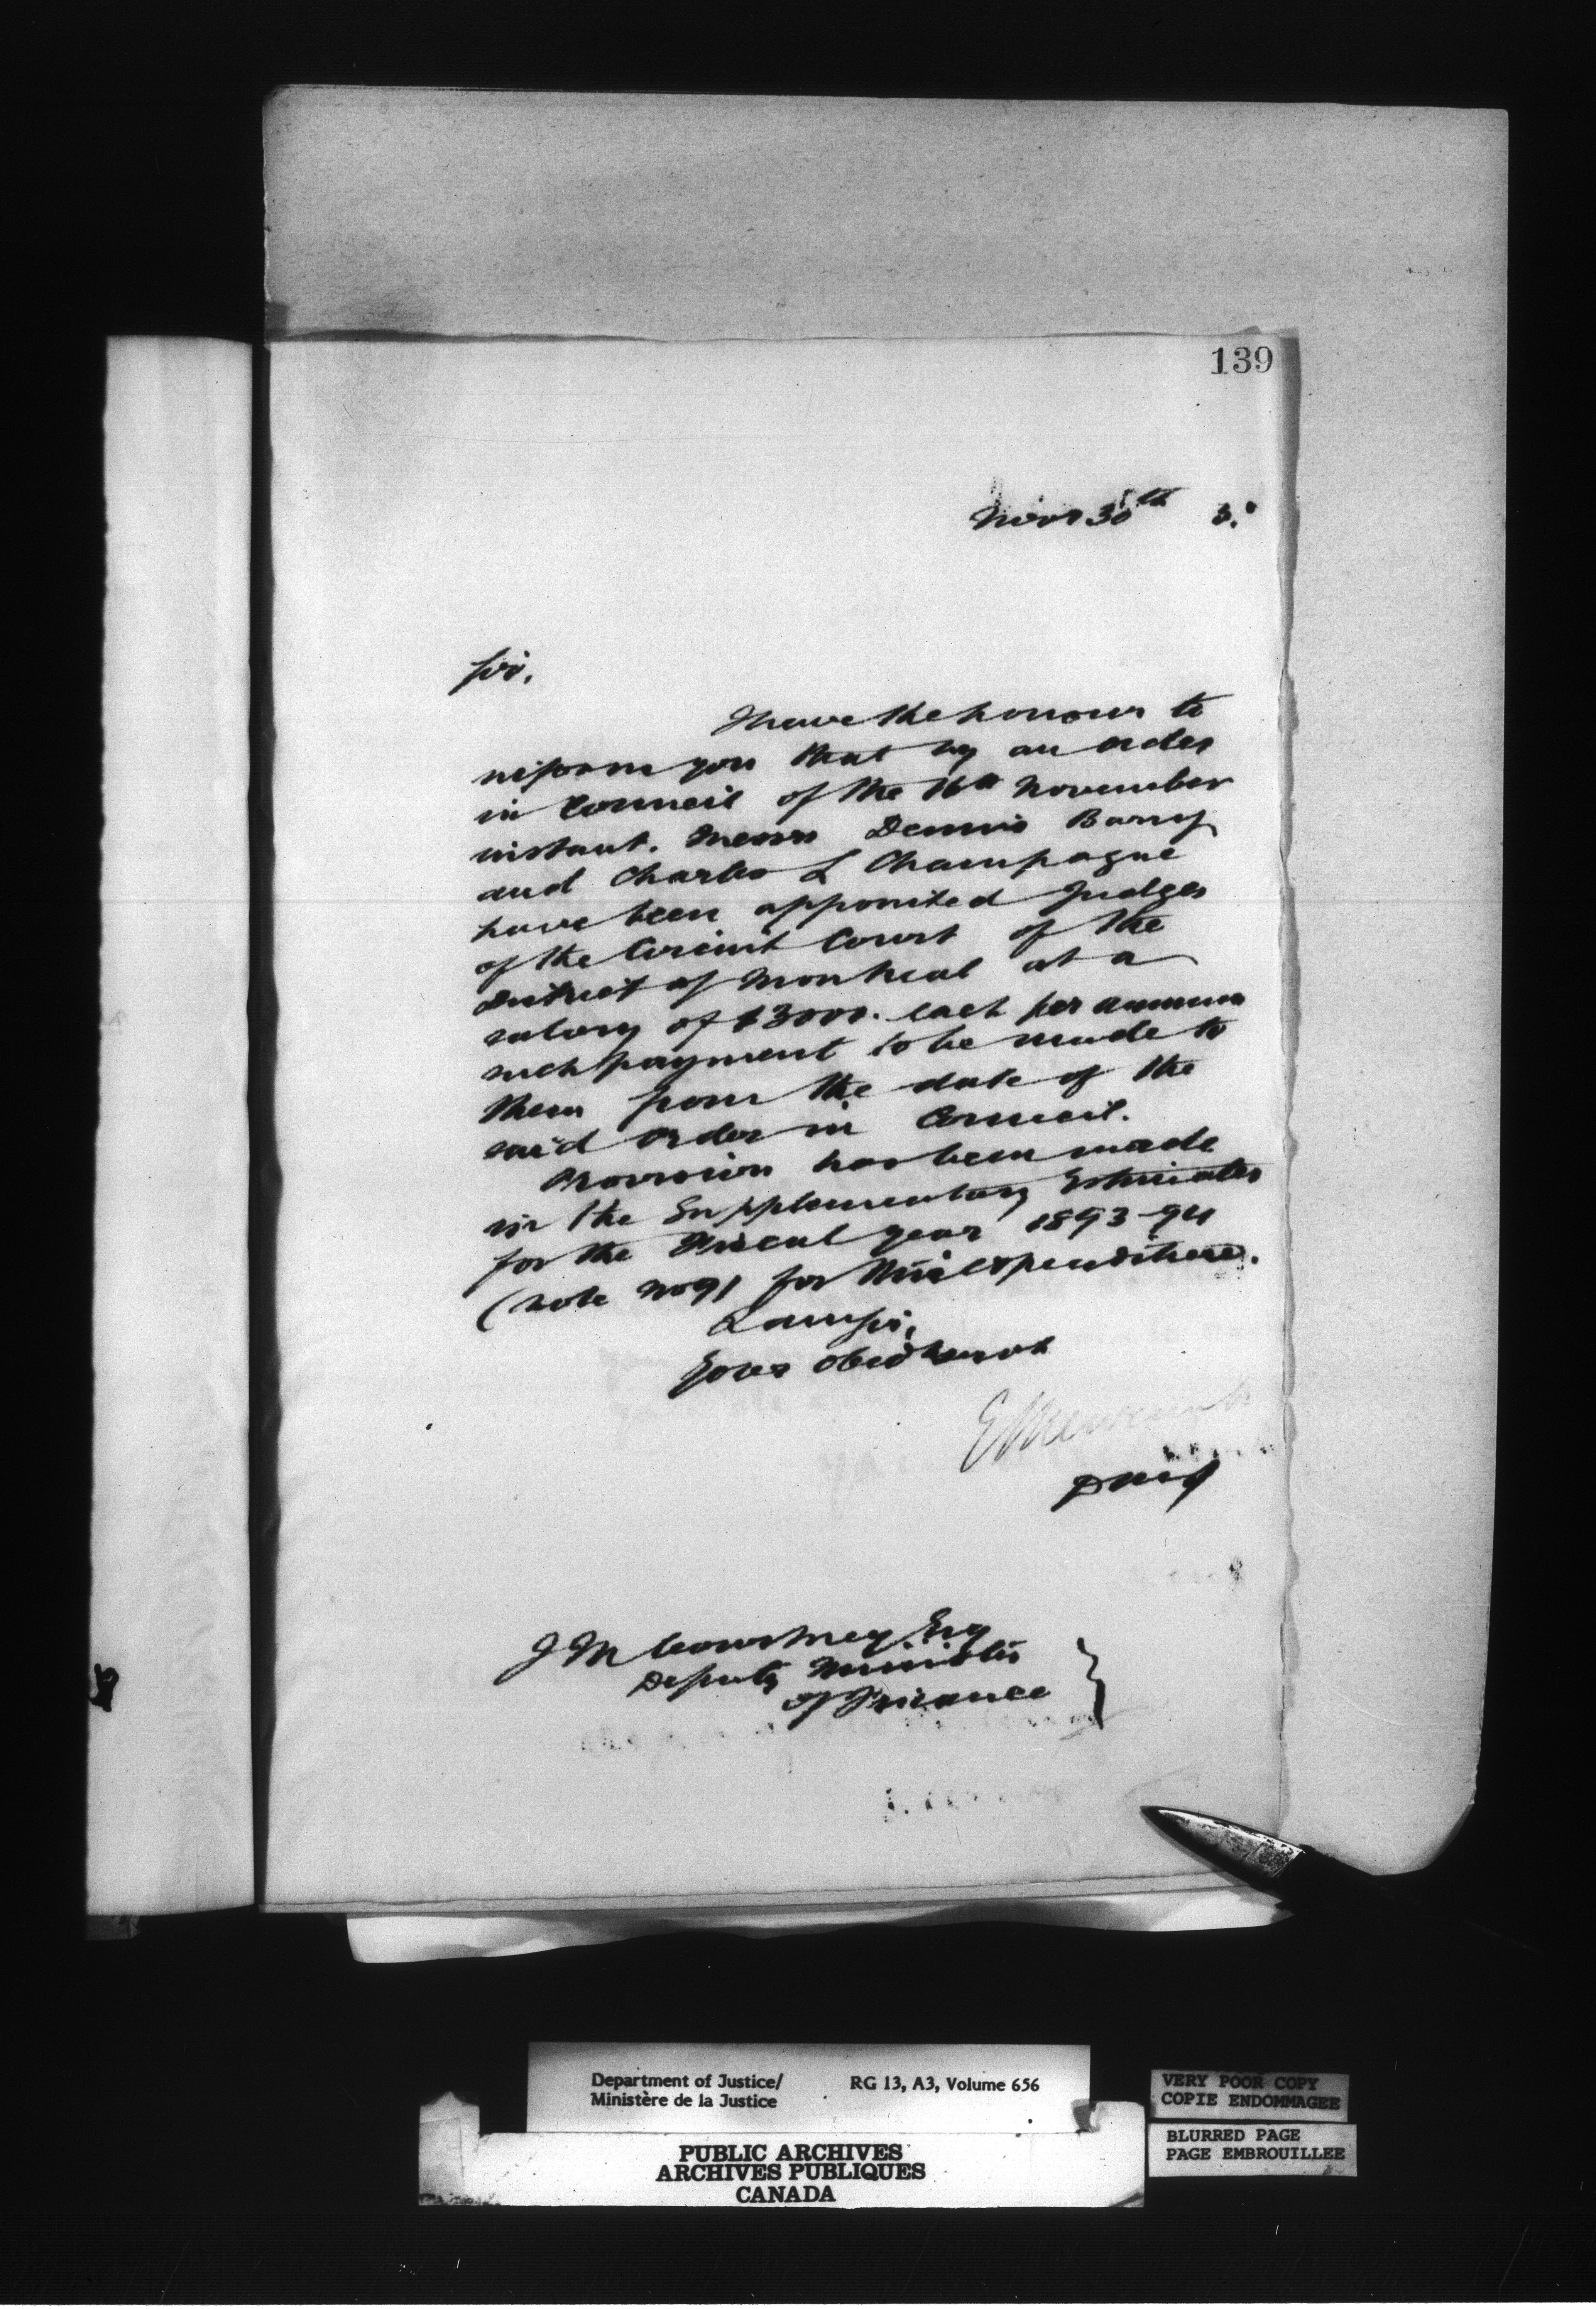 139
Nov 30th 3.
Sir,
I have the honour to
inform you that by an order
in Council of the 16th November
instant. Messrs Dennis Barry
and Charles L Champagne
have been appointed Judges
of the Circuit Court of the
District of Montreal at a
salary of $3000. each per annum
such payment to be made to
them from the date of the
said Order in Council.
Provision has been made
in the Supplementary Estimates
for the Fiscal year 1893-94
(vote No 91 for this expenditure.
I am Sir,
Your obedt servt
E Newcombe
DMJ
J M Courtney Esq
Deputy Minister
of Finance
Department of Justice/
Ministère de la Justice
RG 13, A3, Volume 656
PUBLIC ARCHIVES
ARCHIVES PUBLIQUES
CANADA
VERY POOR COPY
COPIE ENDOMMAGEE
BLURRED PAGE
PAGE EMBROUILLEE